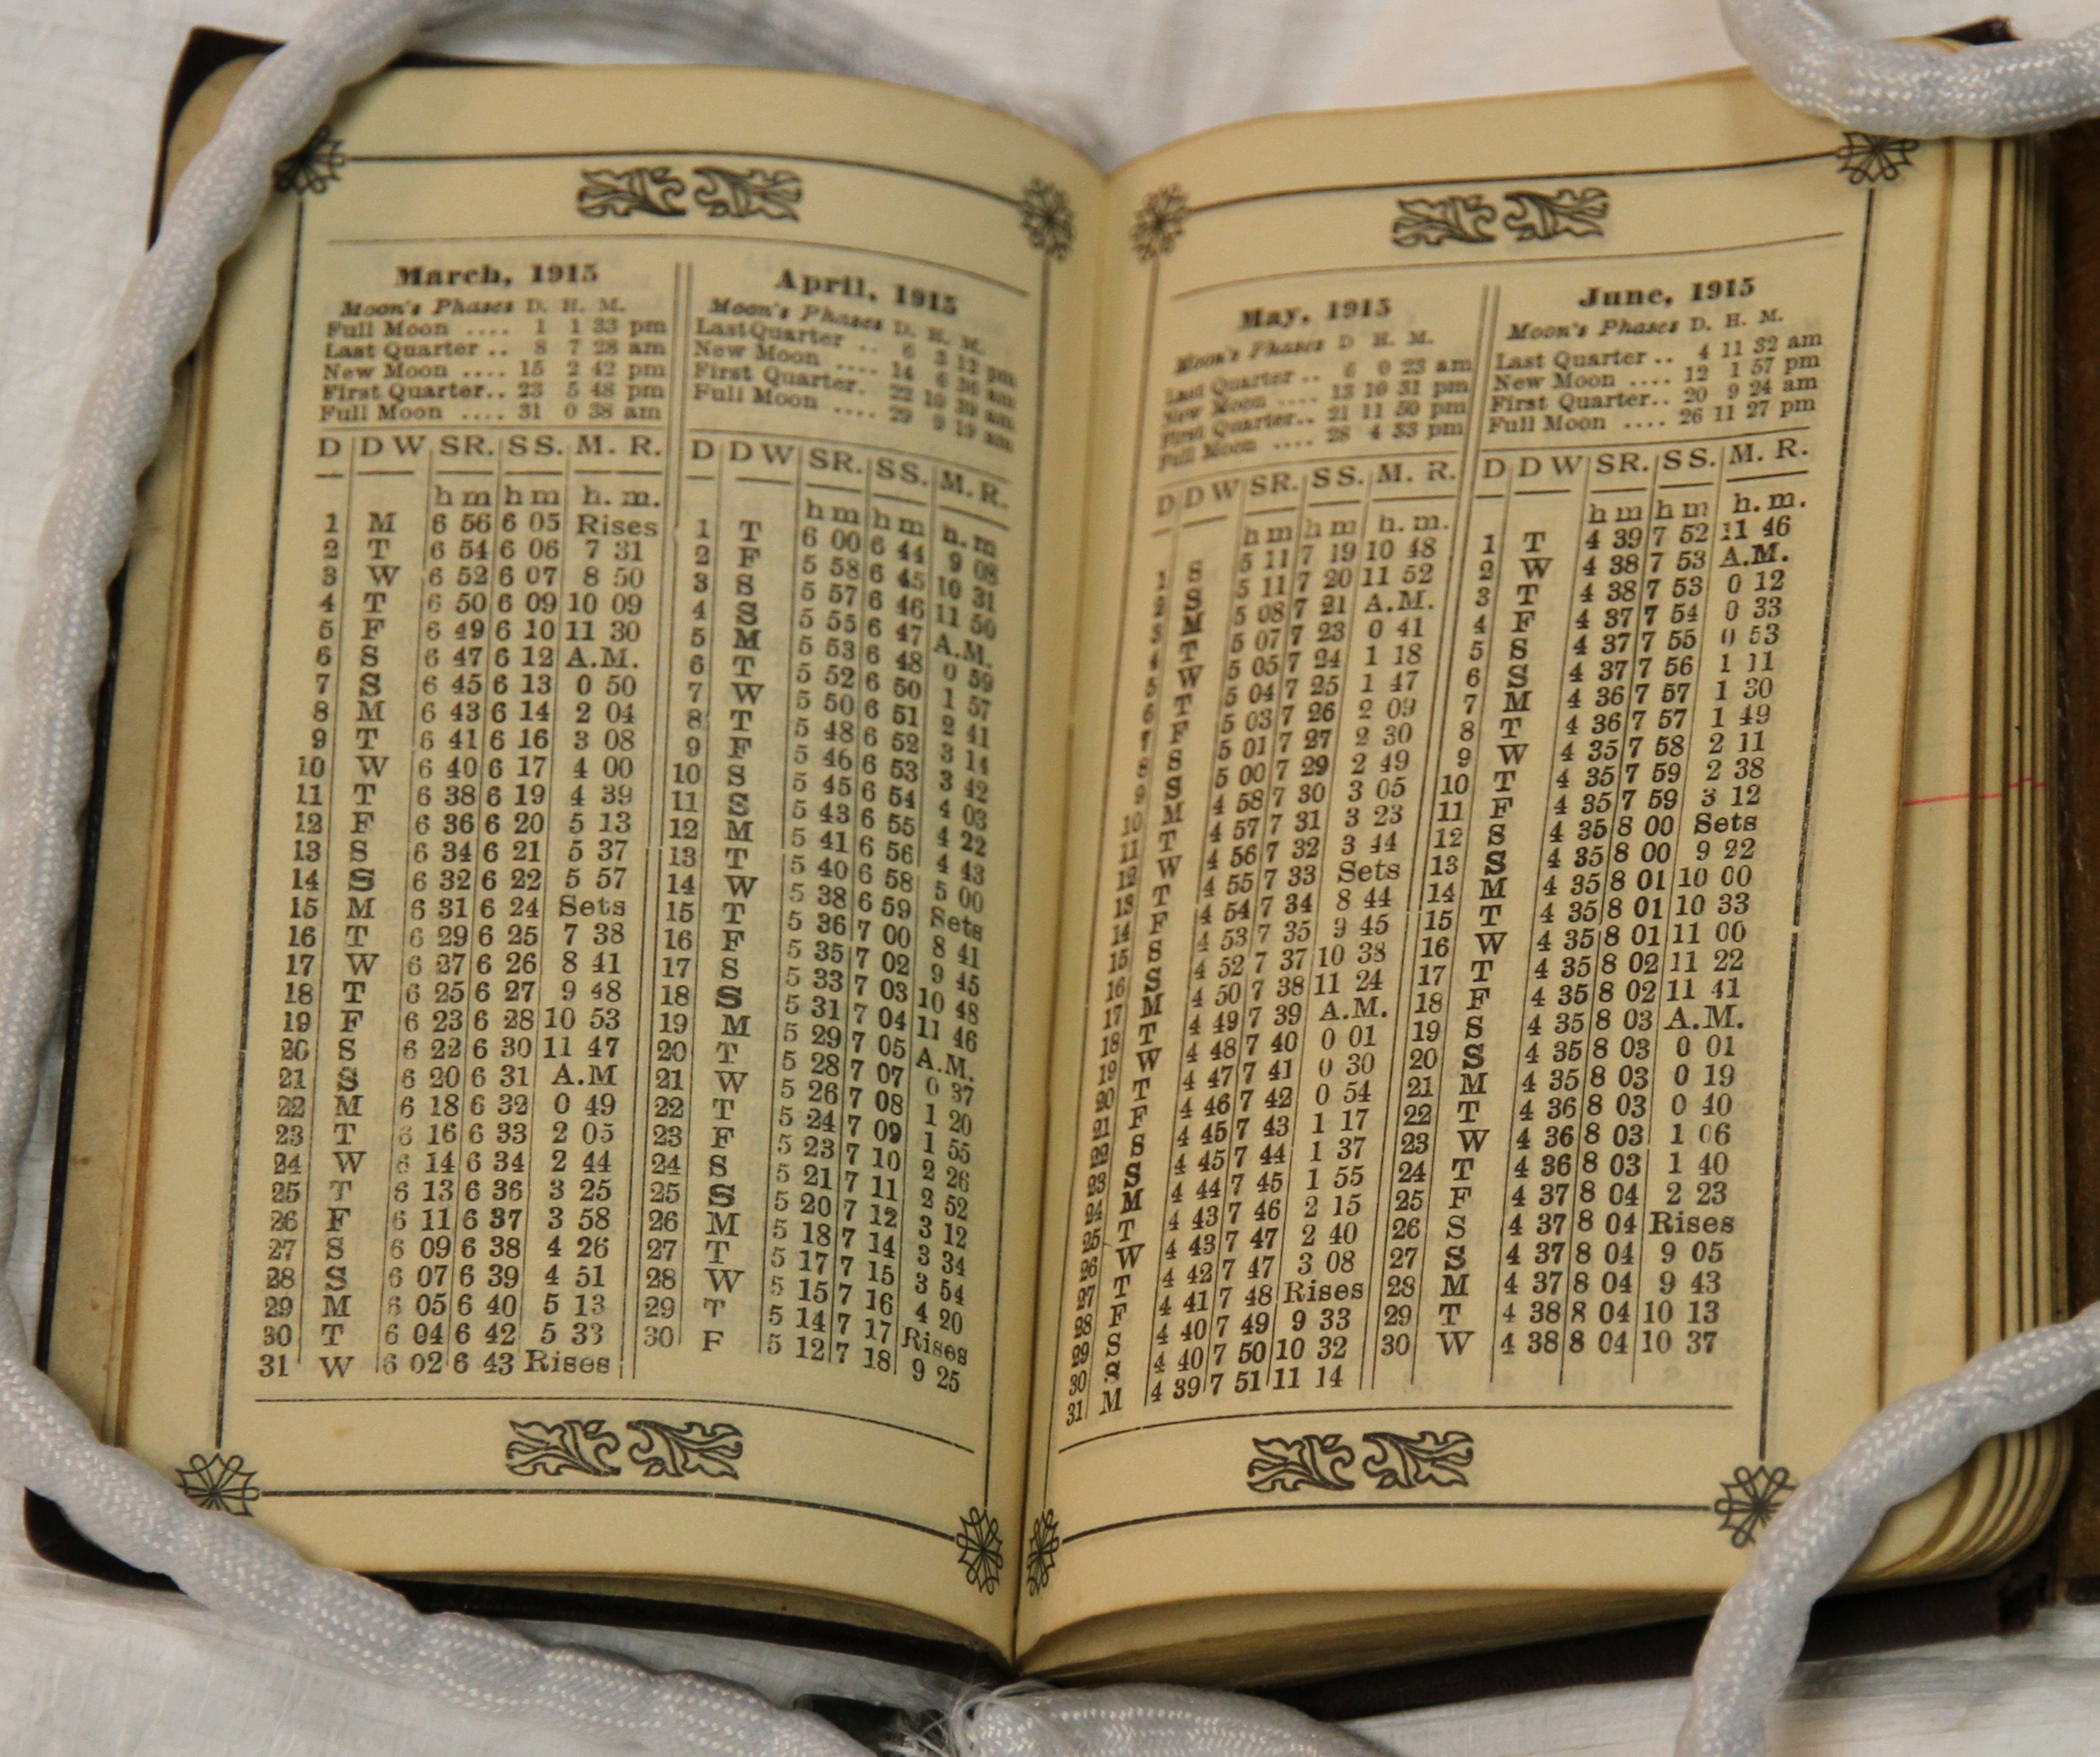 March, 1915
Moon's Phases D. H. M.
Full Moon .... 1 1 33 pm
Last Quarter .. 8 7 28 am
New Moon .... 15 2 42 pm
First Quarter.. 23 5 48 pm
Full Moon .... 31 0 38 am
D D W SR. SS. M. R.
h m h m h. m.
1 M 6 56 6 05 Rises
2 T 6 54 6 06 7 31
3 W 6 52 6 07 8 50
4 T 6 50 6 09 10 09
5 F 6 49 6 10 11 30
6 S 6 47 6 12 A.M.
7 S 6 45 6 13 0 50
8 M 6 43 6 14 2 04
9 T 6 41 6 16 3 08
10 W 6 40 6 17 4 00
11 T 6 38 6 19 4 39
12 F 6 36 6 20 5 13
13 S 6 34 6 21 5 37
14 S 6 32 6 22 5 57
15 M 6 31 6 24 Sets
16 T 6 29 6 25 7 38
17 W 6 27 6 26 8 41
18 T 6 25 6 27 9 48
19 F 6 23 6 28 10 53
20 S 6 22 6 30 11 47
21 S 6 20 6 31 A.M
22 M 6 18 6 32 0 49
23 T 6 16 6 33 2 05
24 W 6 14 6 34 2 44
25 T 6 13 6 36 3 25
26 F 6 11 6 37 3 58
27 S 6 09 6 38 4 26
28 S 6 07 6 39 4 51
29 M 6 05 6 40 5 13
30 T 6 04 6 42 5 33
31 W 6 02 6 43 Rises
April, 1915
Moon's Phases D. H. M.
LastQuarter .. 6 3 12 pm
New Moon .... 14 6 36 am
First Quarter. 22 10 39 am
Full Moon .... 29 9 19 am
D D W SR. SS. M. R.
h m h m h. m
1 T 6 00 6 44 9 08
2 F 5 58 6 45 10 31
3 S 5 57 6 46 11 50
4 S 5 55 6 47 A.M.
5 M 5 53 6 48 0 59
6 T 5 52 6 50 1 57
7 W 5 50 6 51 2 41
8 T 5 48 6 52 3 14
9 F 5 46 6 53 3 42
10 S 5 45 6 54 4 03
11 S 5 43 6 55 4 22
12 M 5 41 6 56 4 43
13 T 5 40 6 58 5 00
14 W 5 38 6 59 Sets
15 T 5 36 7 00 8 41
16 F 5 35 7 02 9 45
17 S 5 33 7 03 10 48
18 S 5 31 7 04 11 46
19 M 5 29 7 05 A.M.
20 T 5 28 7 07 0 37
21 W 5 26 7 08 1 20
22 T 5 24 7 09 1 55
23 F 5 23 7 10 2 26
24 S 5 21 7 11 2 52
25 S 5 20 7 12 3 12
26 M 5 18 7 14 3 34
27 T 5 17 7 15 3 54
28 W 5 15 7 16 4 20
29 T 5 14 7 17 Rises
30 F 5 12 7 18 9 25
May, 1915
Moon's Phases D H. M.
Last Quarter .. 6 0 23 am
New Moon .... 13 10 31 pm
First Quarter.. 21 11 50 pm
Full Moon .... 28 4 33 pm
D D W SR. SS. M. R.
h m h m h. m.
1 S 5 11 7 19 10 48
2 S 5 11 7 20 11 52
3 M 5 08 7 21 A.M.
4 T 5 07 7 23 0 41
5 W 5 05 7 24 1 18
6 T 5 04 7 25 1 47
7 F 5 03 7 26 2 09
8 S 5 01 7 27 2 30
9 S 5 00 7 29 2 49
10 M 4 58 7 30 3 05
11 T 4 57 7 31 3 23
12 W 4 56 7 32 3 44
13 T 4 55 7 33 Sets
14 F 4 54 7 34 8 44
15 S 4 53 7 35 9 45
16 S 4 52 7 37 10 38
17 M 4 50 7 38 11 24
18 T 4 49 7 39 A.M.
19 W 4 48 7 40 0 01
20 T 4 47 7 41 0 30
21 F 4 46 7 42 0 54
22 S 4 45 7 43 1 17
23 S 4 45 7 44 1 37
24 M 4 44 7 45 1 55
25 T 4 43 7 46 2 15
26 W 4 43 7 47 2 40
27 T 4 42 7 47 3 08
28 F 4 41 7 48 Rises
29 S 4 40 7 49 9 33
30 S 4 40 7 50 10 32
31 M 4 39 7 51 11 14
June, 1915
Moon's Phases D. H. M.
Last Quarter .. 4 11 32 am
New Moon .... 12 1 57 pm
First Quarter.. 20 9 24 am
Full Moon .... 26 11 27 pm
D D W SR. SS. M. R.
h m h m h. m.
1 T 4 39 7 52 11 46
2 W 4 38 7 53 A.M.
3 T 4 38 7 53 0 12
4 F 4 37 7 54 0 33
5 S 4 37 7 55 0 53
6 S 4 37 7 56 1 11
7 M 4 36 7 57 1 30
8 T 4 36 7 57 1 49
9 W 4 35 7 58 2 11
10 T 4 35 7 59 2 38
11 F 4 35 7 59 3 12
12 S 4 35 8 00 Sets
13 S 4 35 8 00 9 22
14 M 4 35 8 01 10 00
15 T 4 35 8 01 10 33
16 W 4 35 8 01 11 00
17 T 4 35 8 02 11 22
18 F 4 35 8 02 11 41
19 S 4 35 8 03 A.M.
20 S 4 35 8 03 0 01
21 M 4 35 8 03 0 19
22 T 4 36 8 03 0 40
23 W 4 36 8 03 1 06
24 T 4 36 8 03 1 40
25 F 4 37 8 04 2 23
26 S 4 37 8 04 Rises
27 S 4 37 8 04 9 05
28 M 4 37 8 04 9 43
29 T 4 38 8 04 10 13
30 W 4 38 8 04 10 37